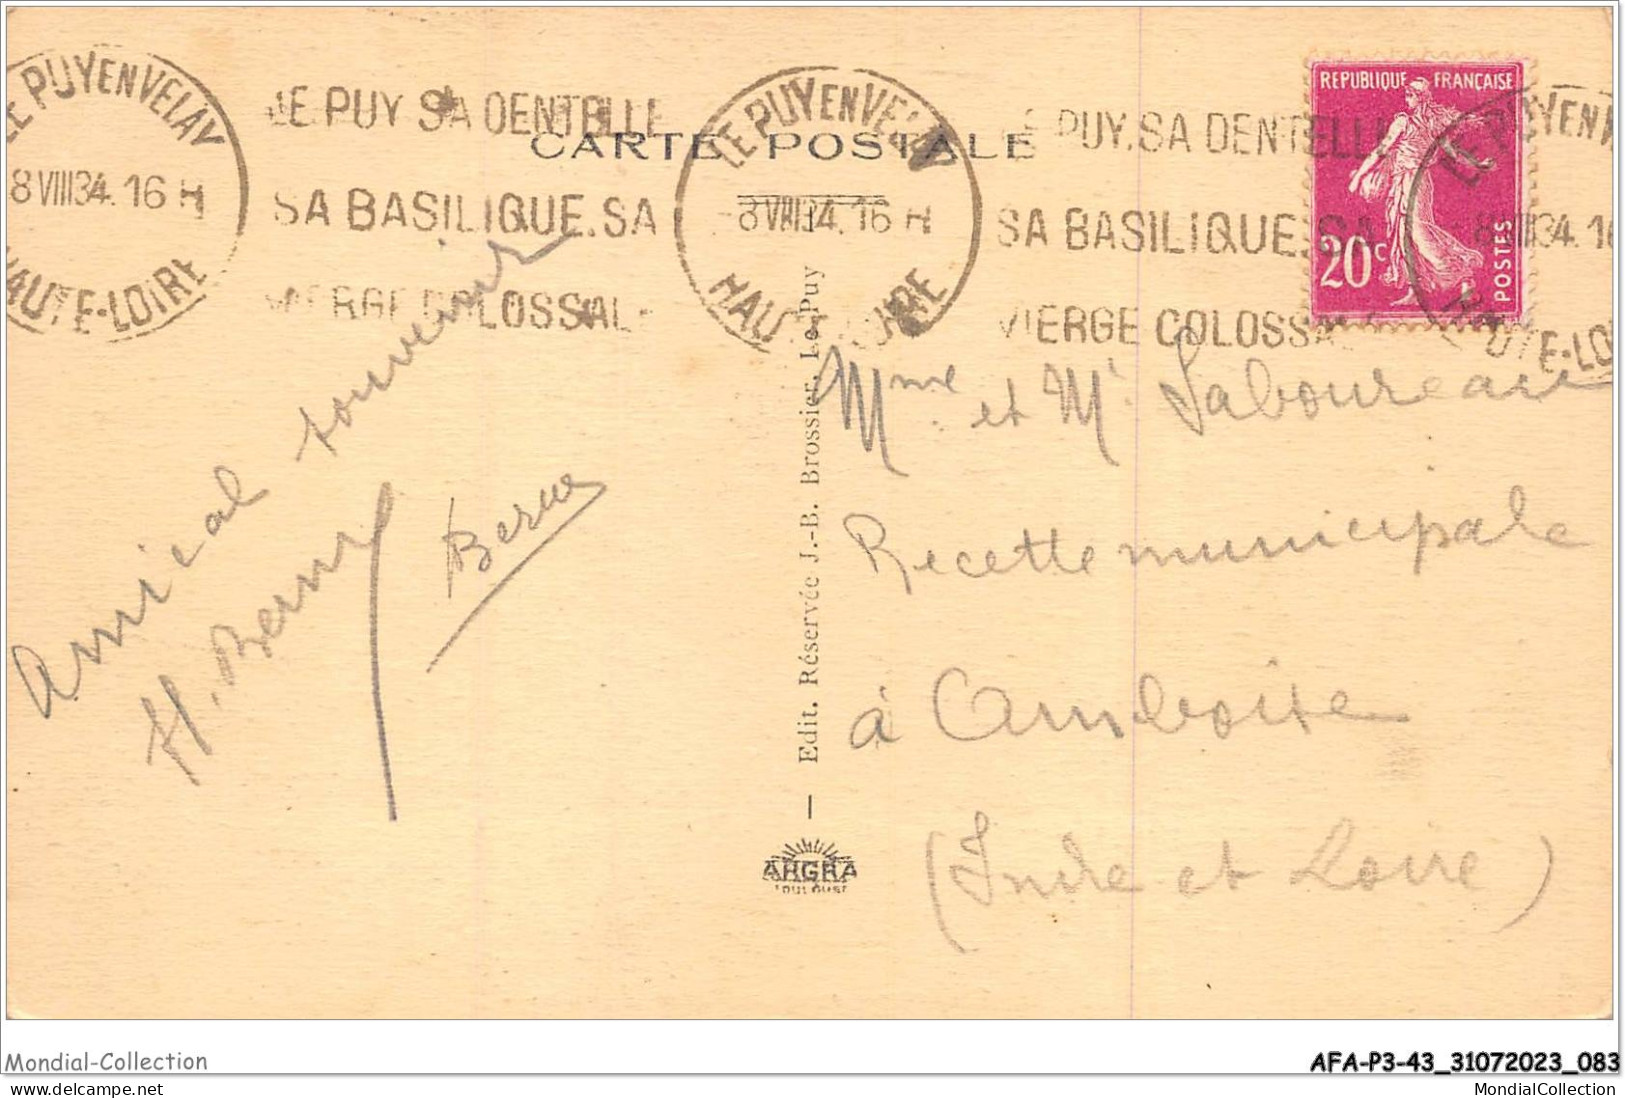 LE PUY EN VELAY
8 VIII 34. 16 H
HAUTE-LOIRE
LE PUY. SA DENTELLE
SA BASILIQUE. SA
VIERGE COLOSSALE
CARTE POSTALE
LE PUY EN VELAY
8 VIII 34. 16 H
HAUTE-LOIRE
LE PUY. SA DENTELLE
SA BASILIQUE. SA
VIERGE COLOSSALE
REPUBLIQUE FRANÇAISE
20c
POSTES
LE PUY EN
8 VIII 34. 16
HAUTE-LO
Amical souvenir
H. Berne
Berne
Edit. Réservée J.-B. Brossier, Le Puy
ARGRA
TOULOUSE
Mme et Mr Laboureau
Recette municipale
à Amboise
(Indre et Loire)
Mondial-Collection
AFA-P3-43_31072023_083
www.delcampe.net
MondialCollection